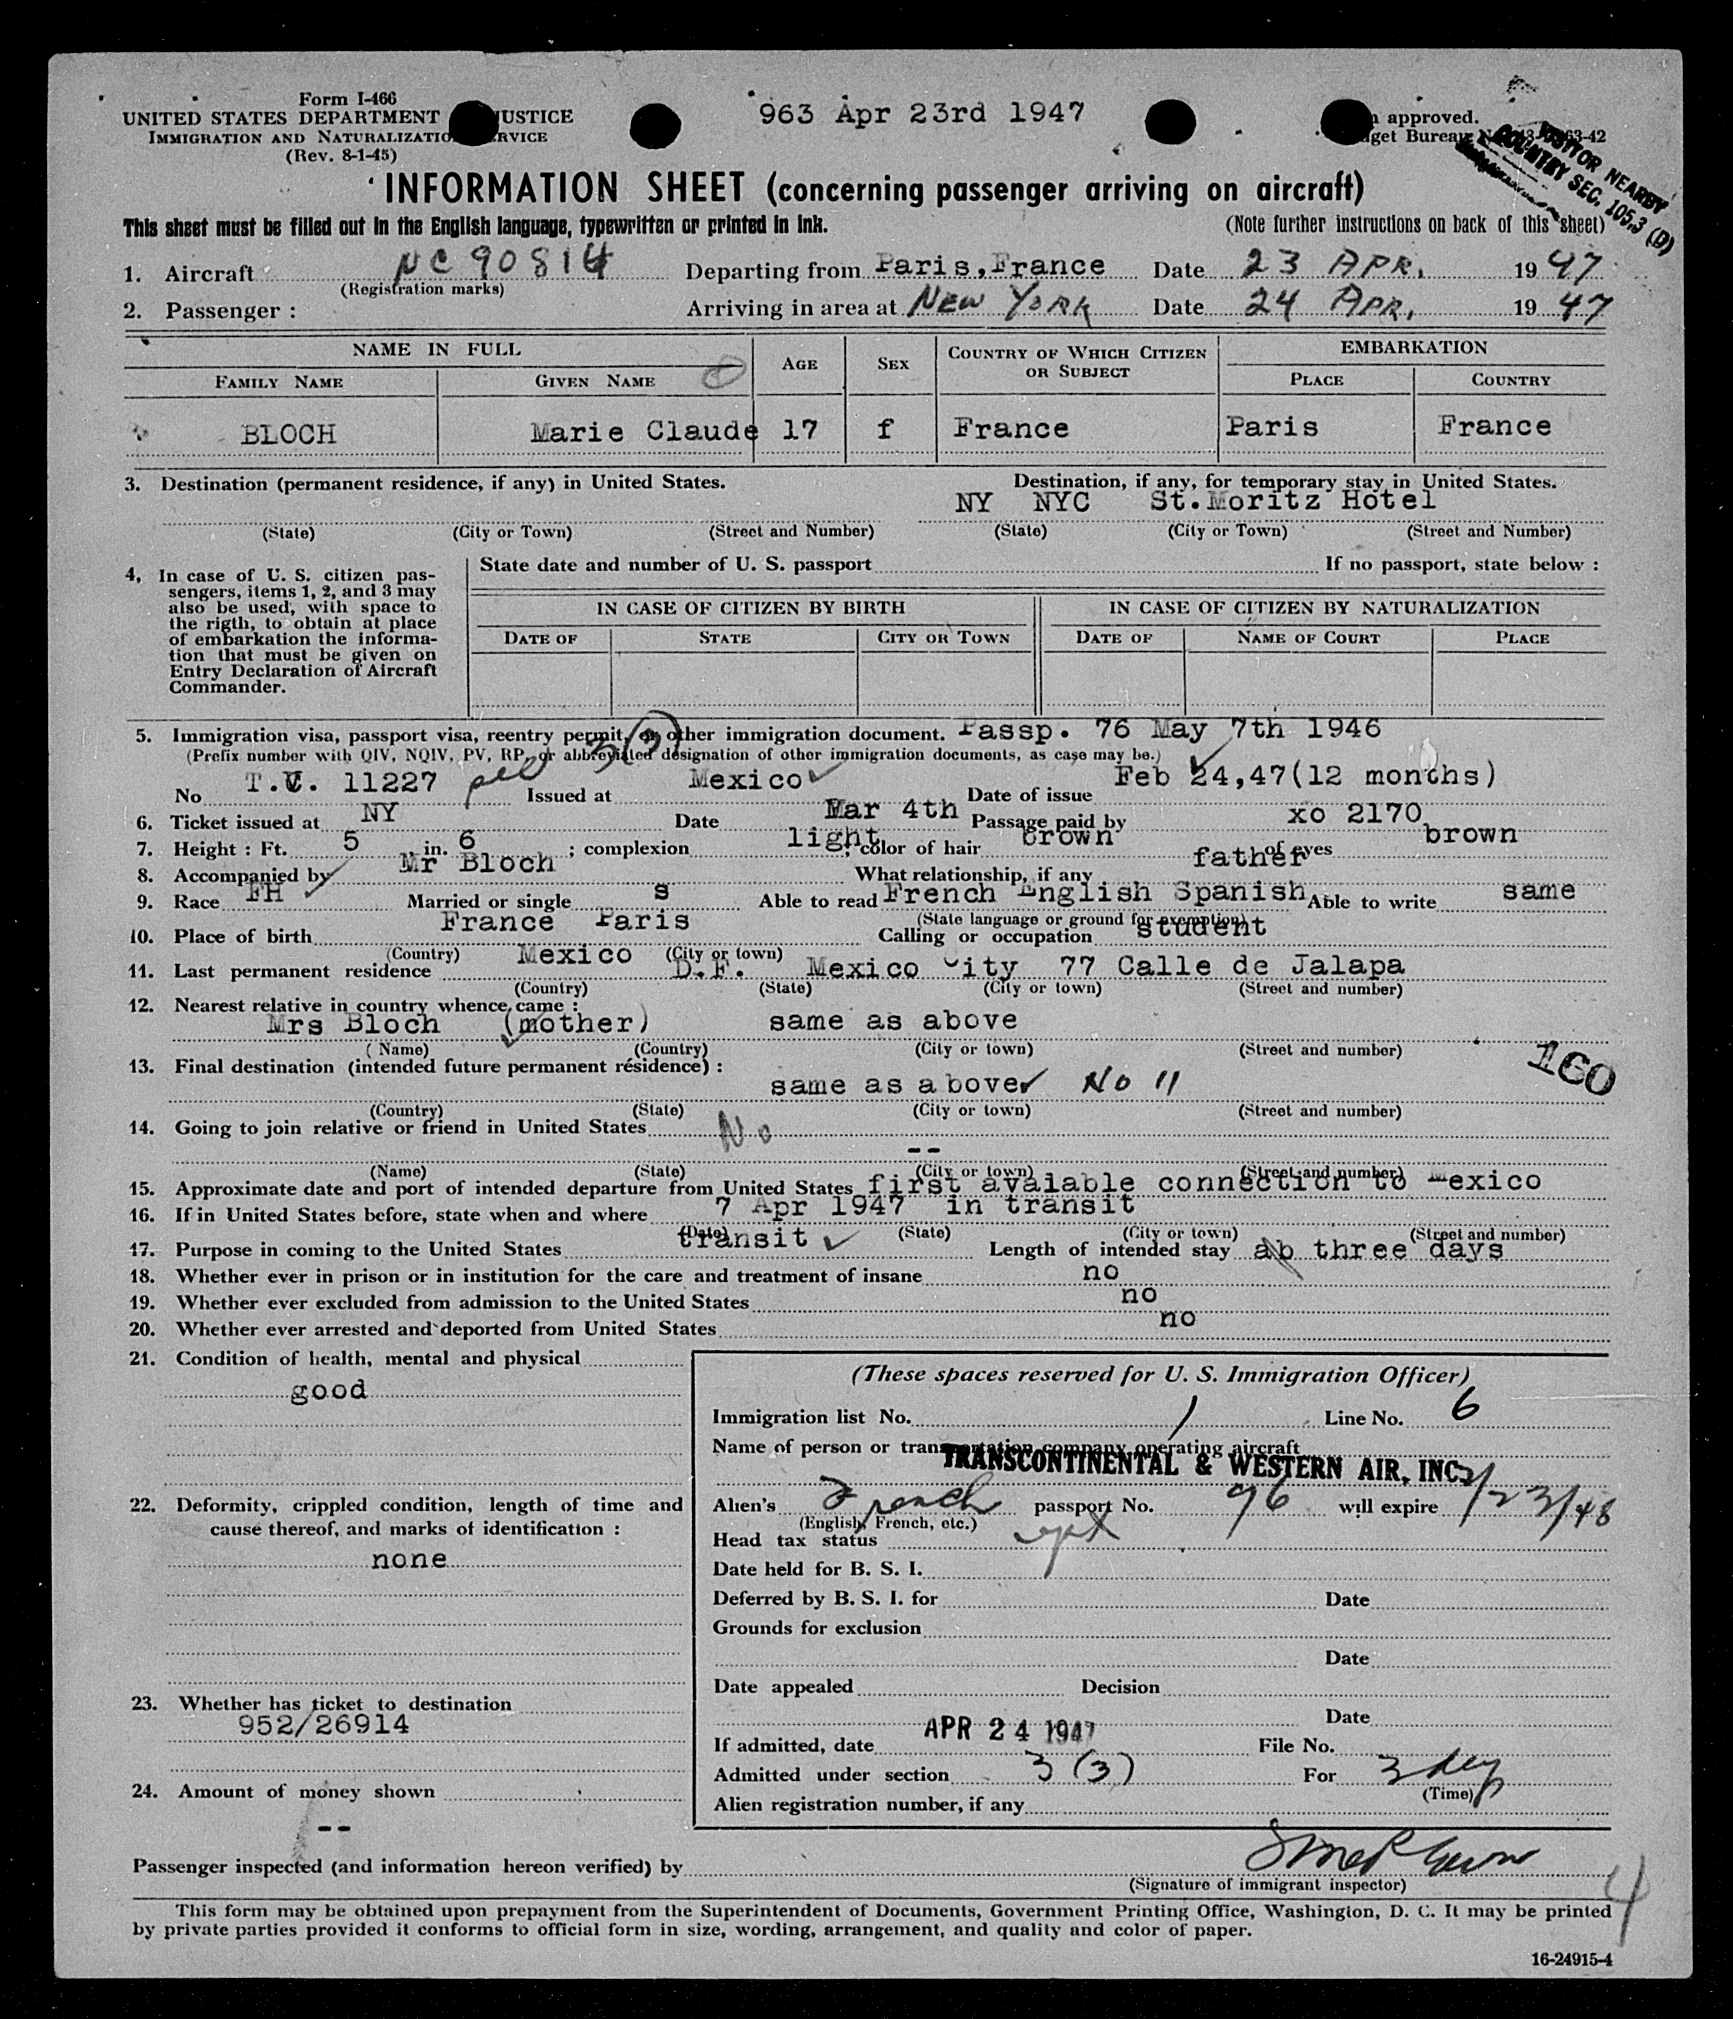 Form I-466
UNITED STATES DEPARTMENT JUSTICE
IMMIGRATION AND NATURALIZATIO RVICE
(Rev. 8-1-45)
963 Apr 23rd 1947
approved.
get Bureau
63-42
VISITOR NEARBY
COUNTRY SEC. 105.3 (D)
INFORMATION SHEET (concerning passenger arriving on aircraft)
This sheet must be filled out in the English language, typewritten or printed in ink. (Note further instructions on back of this sheet)
1. Aircraft NC 90814 Departing from Paris, France Date 23 APR. 1947
(Registration marks)
2. Passenger : Arriving in area at NEW YORK Date 24 APR. 1947
NAME IN FULL AGE SEX COUNTRY OF WHICH CITIZEN OR SUBJECT EMBARKATION
FAMILY NAME GIVEN NAME PLACE COUNTRY
BLOCH Marie Claude 17 f France Paris France
3. Destination (permanent residence, if any) in United States. Destination, if any, for temporary stay in United States.
NY NYC St.Moritz Hotel
(State) (City or Town) (Street and Number) (State) (City or Town) (Street and Number)
4, In case of U. S. citizen pas-
sengers, items 1, 2, and 3 may
also be used, with space to
the rigth, to obtain at place
of embarkation the informa-
tion that must be given on
Entry Declaration of Aircraft
Commander.
State date and number of U. S. passport If no passport, state below :
IN CASE OF CITIZEN BY BIRTH IN CASE OF CITIZEN BY NATURALIZATION
DATE OF STATE CITY OR TOWN DATE OF NAME OF COURT PLACE
5. Immigration visa, passport visa, reentry permit, or other immigration document. Passp. 76 May 7th 1946
3(3)
(Prefix number with QIV, NQIV, PV, RP, or abbreviated designation of other immigration documents, as case may be.)
No T.V. 11227 Issued at Mexico Date of issue Feb 24,47(12 months)
6. Ticket issued at NY Date Mar 4th Passage paid by xo 2170
7. Height : Ft. 5 in. 6 ; complexion light ; color of hair brown of eyes brown
8. Accompanied by Mr Bloch What relationship, if any father
9. Race FH Married or single s Able to read French English Spanish Able to write same
(State language or ground for exemption)
10. Place of birth France Paris Calling or occupation student
(Country) (City or town)
11. Last permanent residence Mexico D.F. Mexico City 77 Calle de Jalapa
(Country) (State) (City or town) (Street and number)
12. Nearest relative in country whence came :
Mrs Bloch (mother) same as above
( Name) (Country) (City or town) (Street and number)
160
13. Final destination (intended future permanent résidence) :
same as above No 11
(Country) (State) (City or town) (Street and number)
14. Going to join relative or friend in United States No
--
(Name) (State) (City or town) (Street and number)
15. Approximate date and port of intended departure from United States first avaiable connection to Mexico
16. If in United States before, state when and where 7 Apr 1947 in transit
(Date) (State) (City or town) (Street and number)
17. Purpose in coming to the United States transit Length of intended stay ab three days
18. Whether ever in prison or in institution for the care and treatment of insane no
19. Whether ever excluded from admission to the United States no
20. Whether ever arrested and deported from United States no
21. Condition of health, mental and physical
good
22. Deformity, crippled condition, length of time and
cause thereof, and marks of identification :
none
23. Whether has ticket to destination
952/26914
24. Amount of money shown
--
(These spaces reserved for U. S. Immigration Officer)
Immigration list No. 1 Line No. 6
Name of person or transportation company operating aircraft
TRANSCONTINENTAL & WESTERN AIR, INC.
Alien's French passport No. 76 will expire 2/23/48
(English, French, etc.)
Head tax status
Date held for B. S. I.
Deferred by B. S. I. for Date
Grounds for exclusion
Date
Date appealed Decision
Date
If admitted, date APR 24 1947 File No.
Admitted under section 3 (3) For 3 days
(Time)
Alien registration number, if any
Passenger inspected (and information hereon verified) by
(Signature of immigrant inspector)
4
This form may be obtained upon prepayment from the Superintendent of Documents, Government Printing Office, Washington, D. C. It may be printed
by private parties provided it conforms to official form in size, wording, arrangement, and quality and color of paper.
16-24915-4